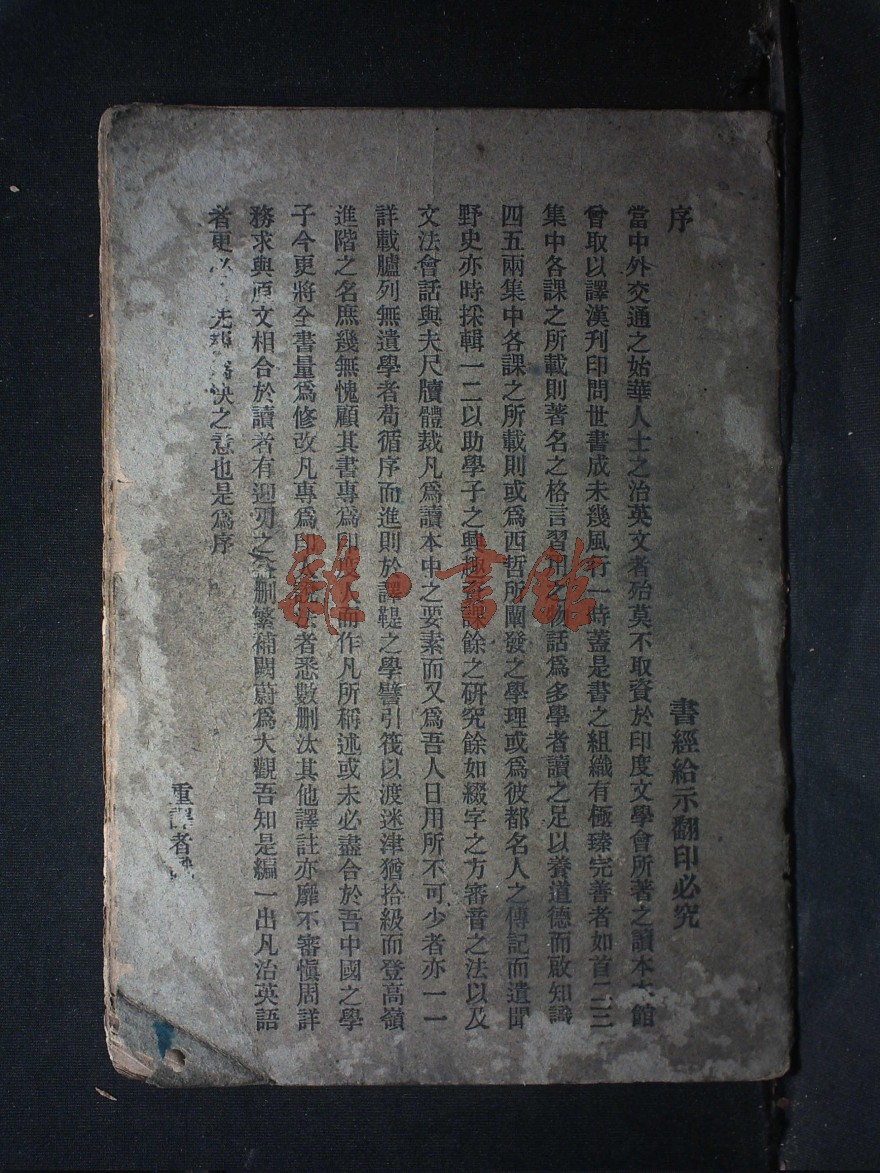 序
書經給示翻印必究
當中外交通之始華人士之治英文者殆莫不取資於印度文學會所著之讀本本館
曾取以譯漢刋印問世書成未幾風行一時蓋是書之組織有極臻完善者如首二三
集中各課之所載則著名之格言習用之物話爲多學者讀之足以養道德而啟知識
四五兩集中各課之所載則或爲西哲所闡發之學理或爲彼都名人之傳記而遺聞
野史亦時採輯一二以助學子之興趣 課餘之研究餘如綴字之方審音之法以及
文法會話與夫尺牘體裁凡爲讀本中之要素而又爲吾人日用所不可少者亦一一
詳載臚列無遺學者苟循序而進則於譯鞮之學譬引筏以渡迷津猶拾級而登高嶺
進階之名庶幾無愧顧其書專爲印度人而作凡所稱述或未必盡合於吾中國之學
子今更將全書量爲修改凡專爲印 者悉數删汰其他譯註亦靡不審愼周詳
務求與原文相合於讀者有迎刃之 删繁補闕蔚爲大觀吾知是編一出凡治英語
者更 快之意也是爲序
重譯者
雜·書館